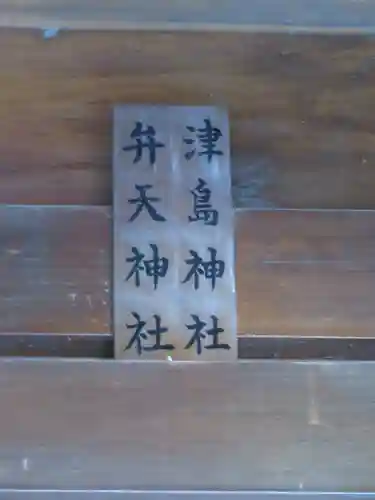 津島神社
弁天神社